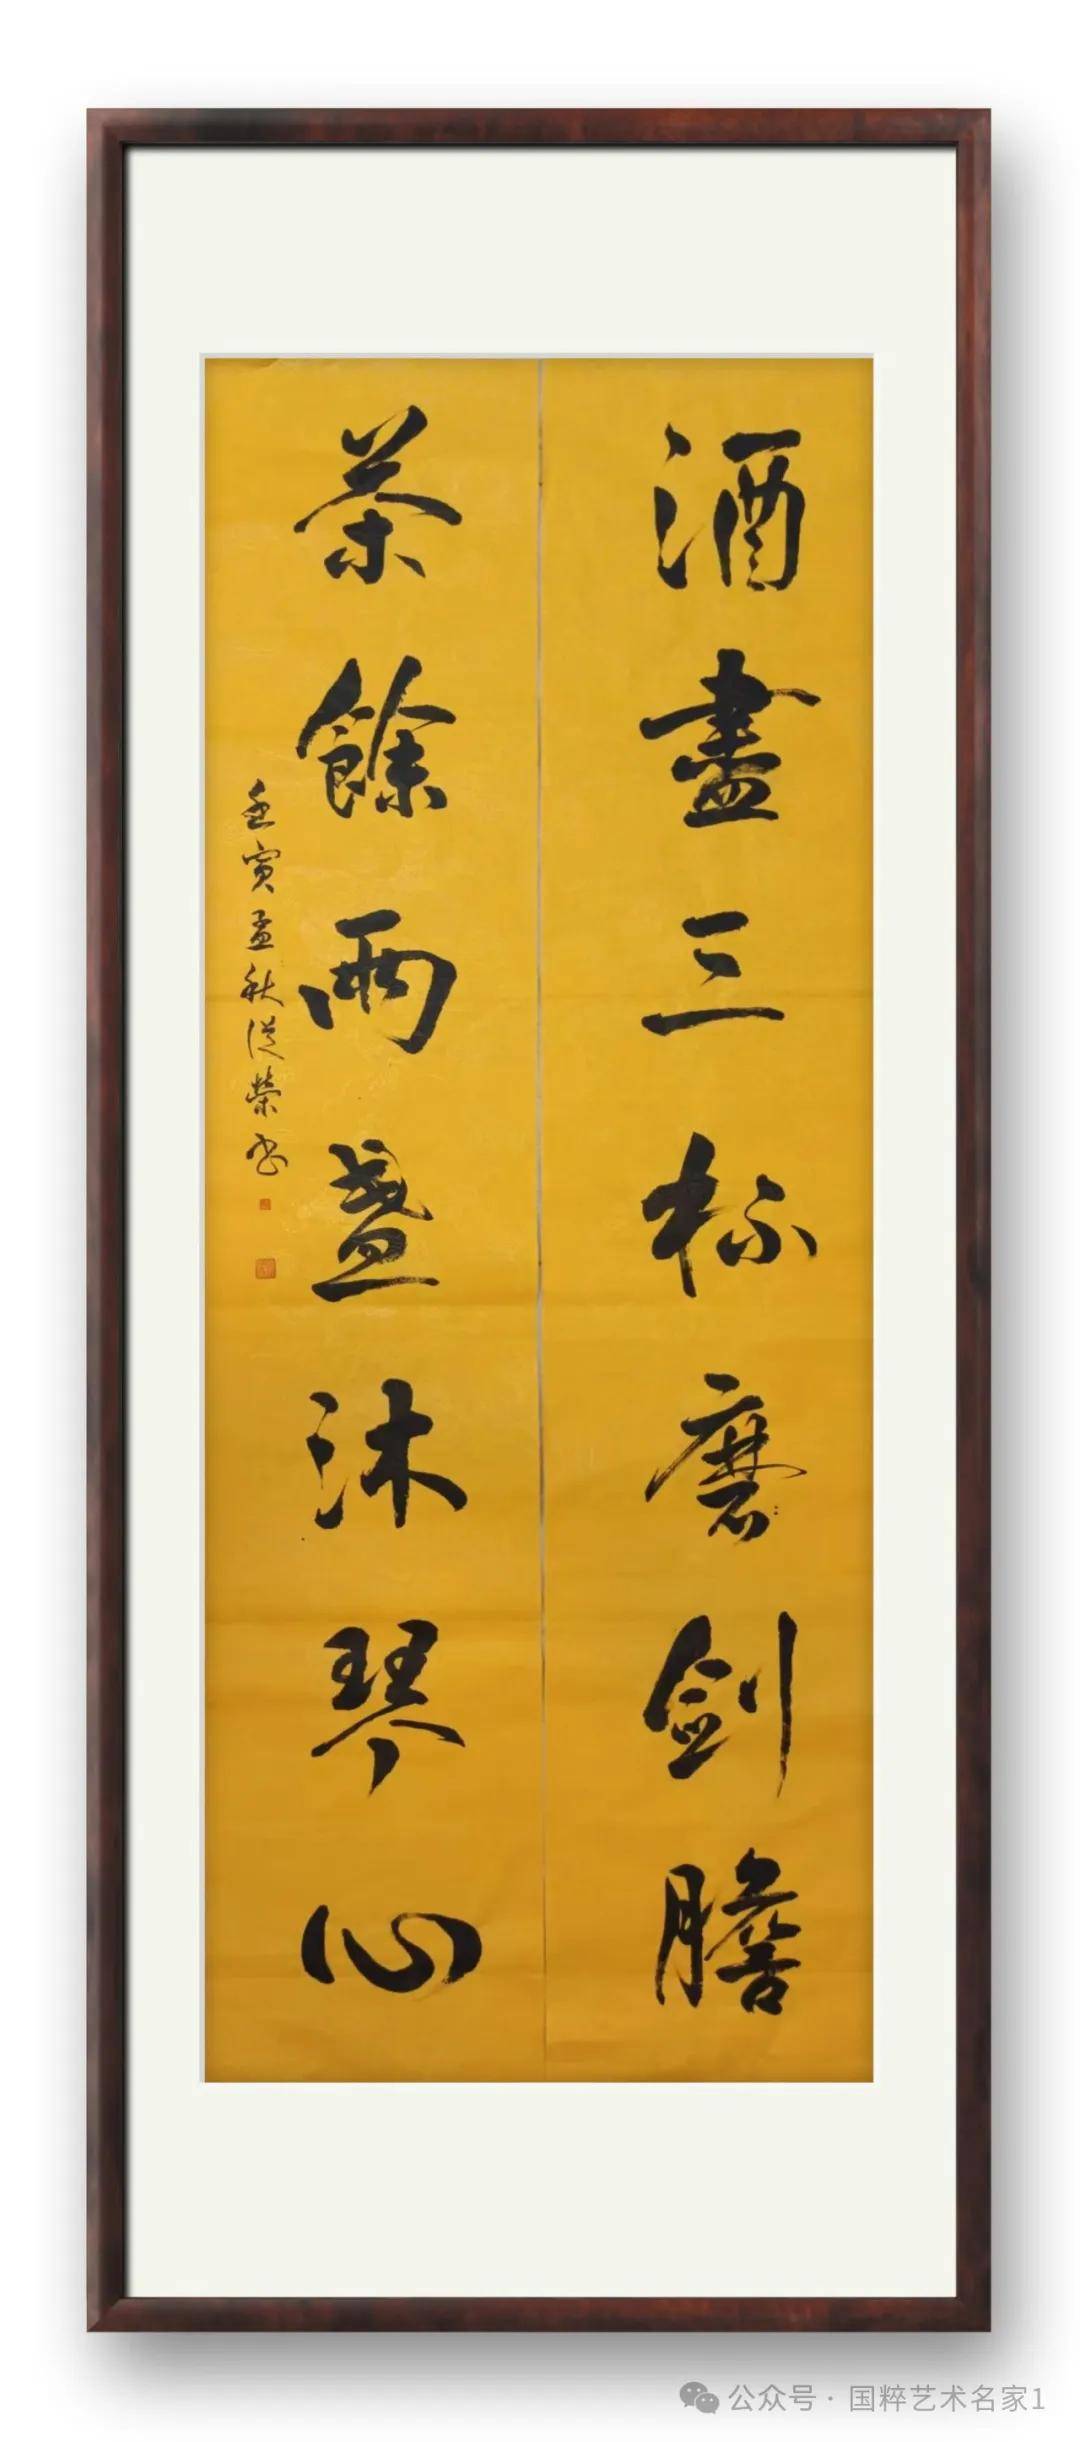 酒盡三杯磨劍膽
茶餘兩盏沐琴心
壬寅孟秋從榮書
公众号 · 国粹艺术名家1